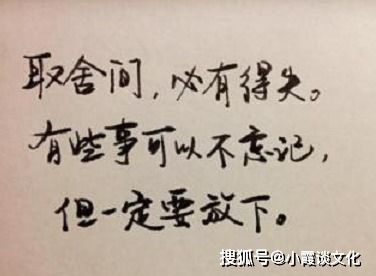 取舍间，必有得失。
有些事可以不忘记，
但一定要放下。
搜狐号@小霞谈文化